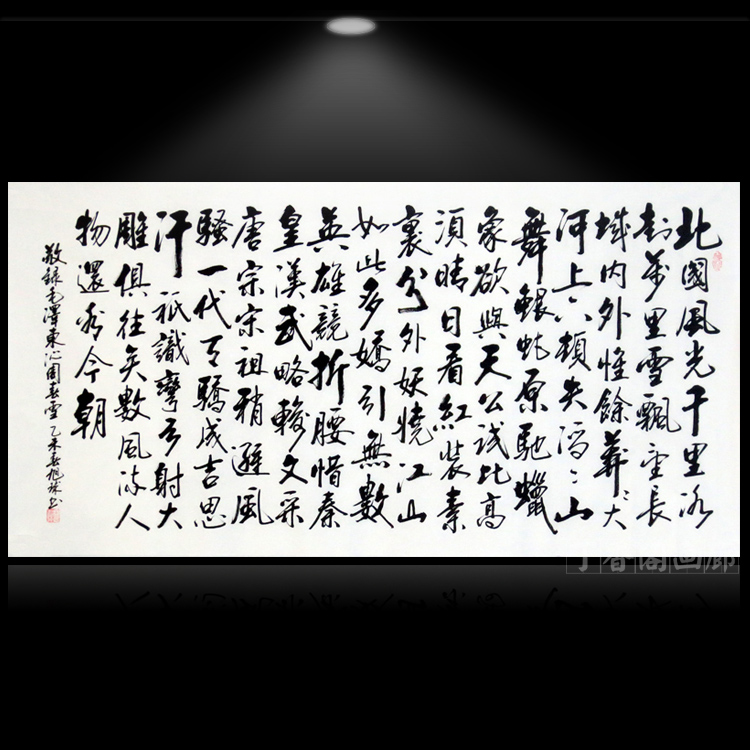 北國風光千里冰
封萬里雪飄望長
城内外惟餘莽〻大
河上下頓失滔〻山
舞銀蛇原馳蠟
象欲與天公試比高
須晴日看紅裝素
裹分外妖嬈江山
如此多嬌引無數
英雄競折腰惜秦
皇漢武略輸文采
唐宗宋祖稍遜風
騷一代天驕成吉思
汗祇識彎弓射大
雕俱往矣數風流人
物還看今朝
敬録毛澤東沁園春雪 乙未春旭 書
春閣画廊